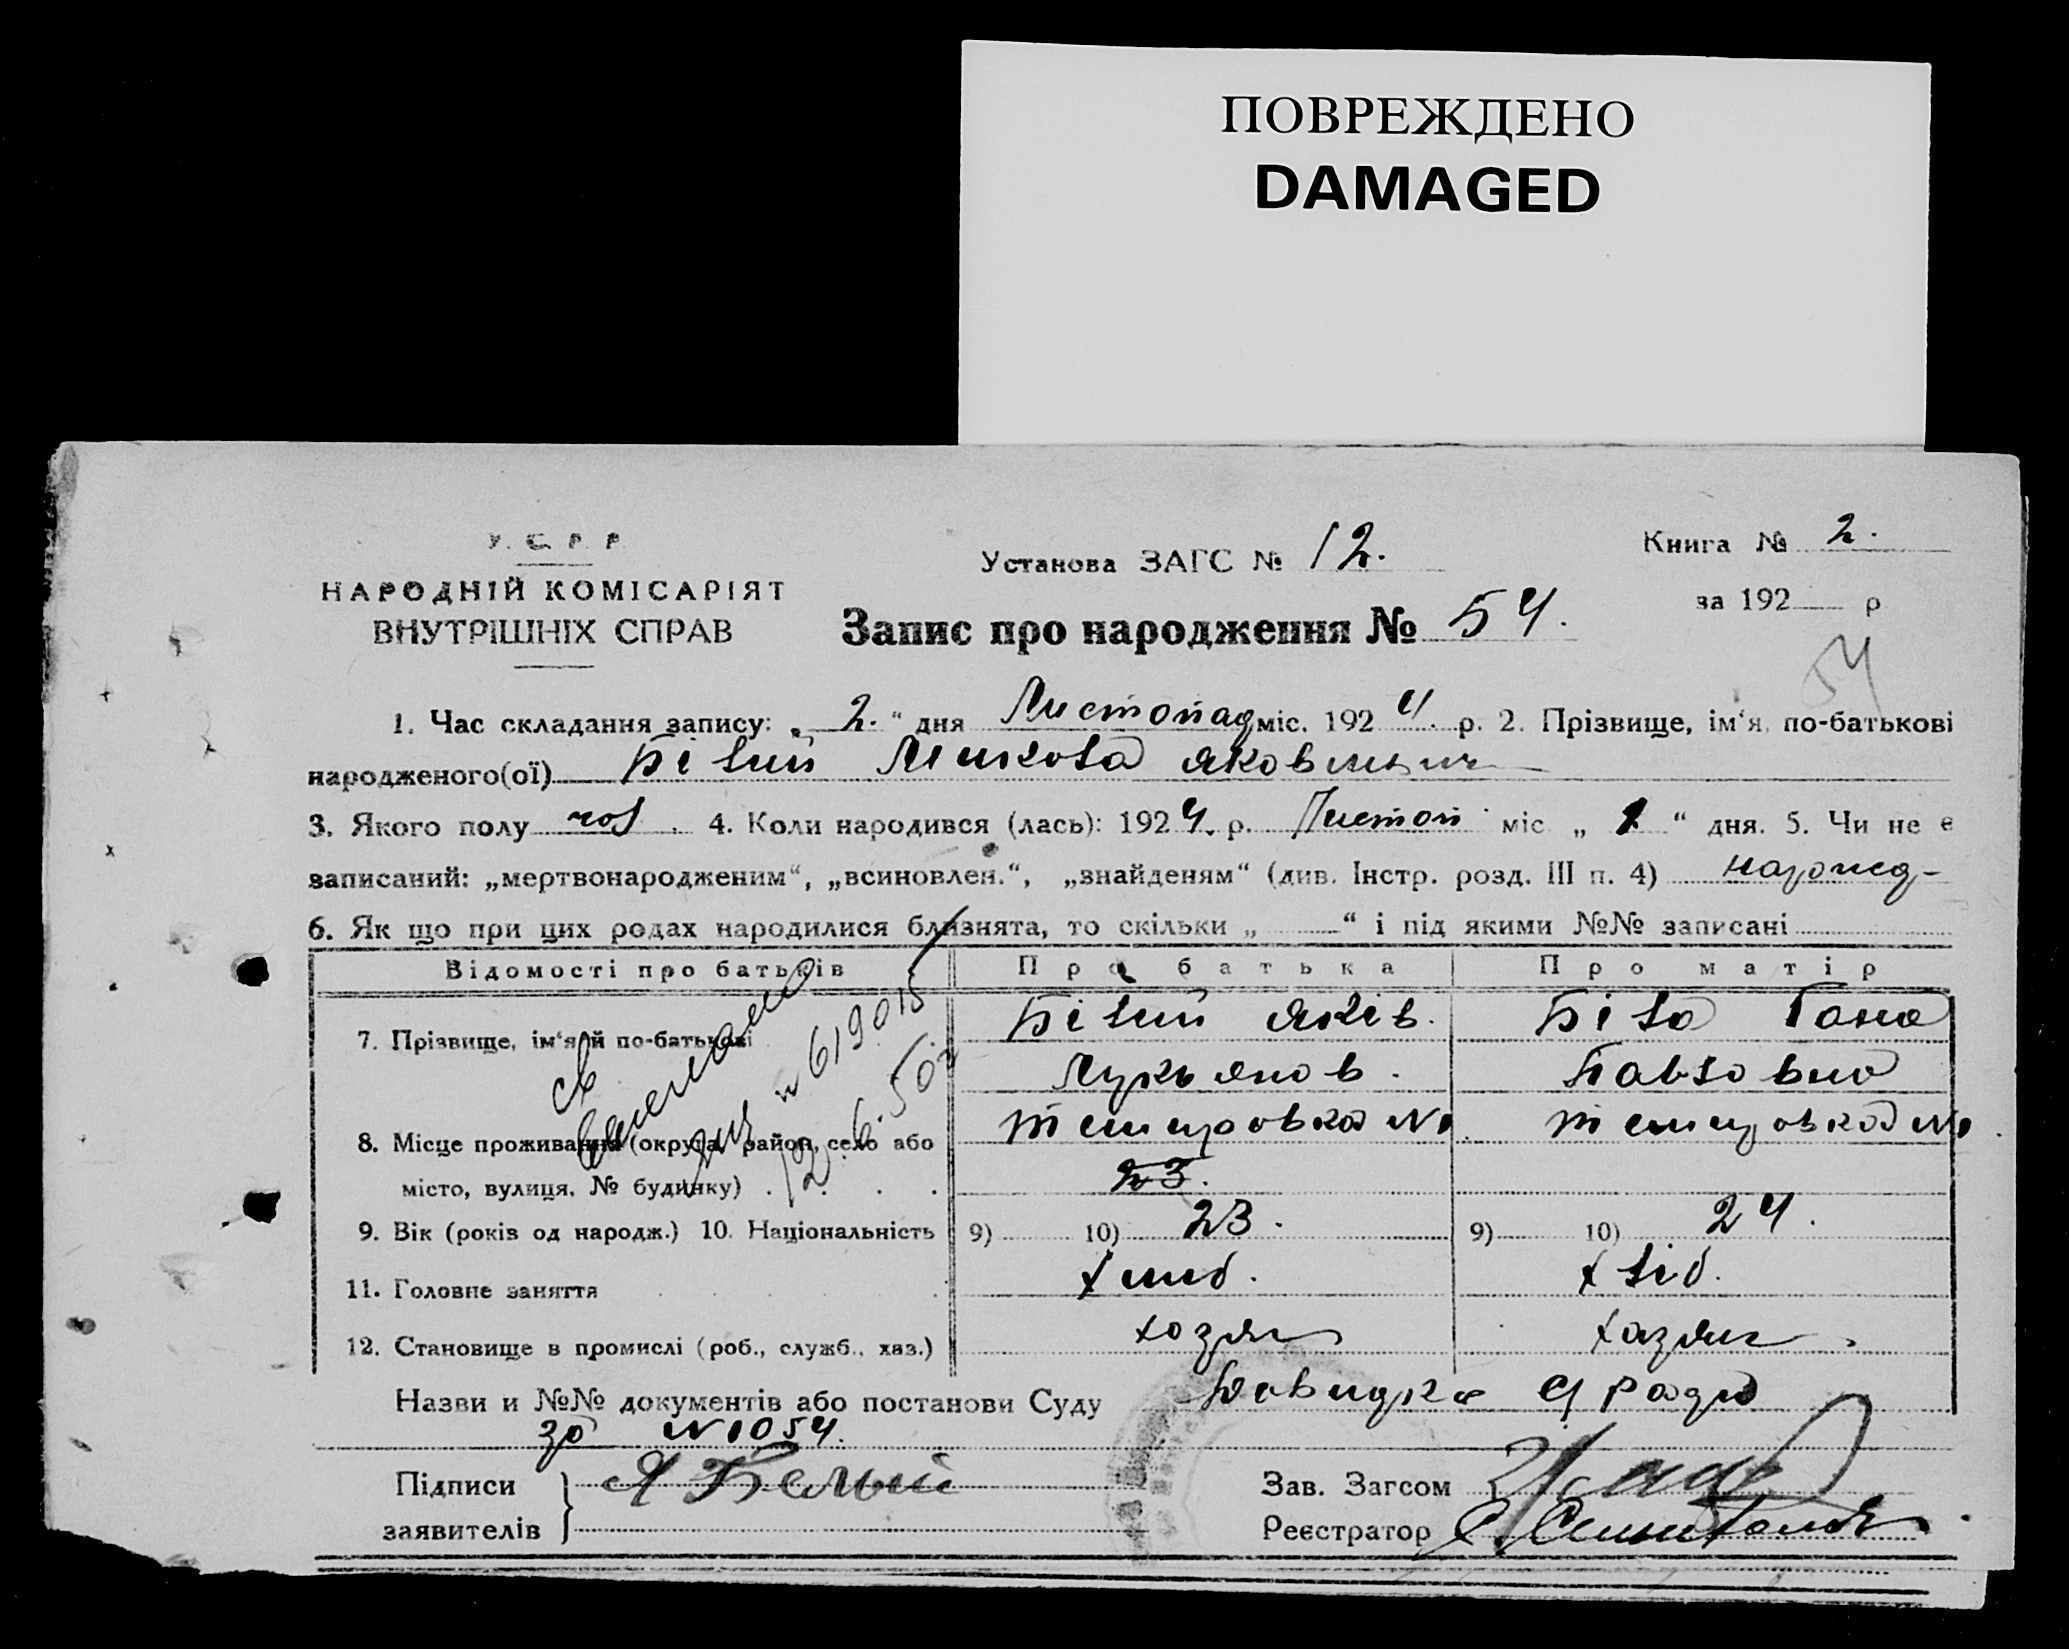 ПОВРЕЖДЕНО
DAMAGED
У. С. Р. Р.
НАРОДНІЙ КОМІСАРІЯТ
ВНУТРІШНІХ СПРАВ
Установа ЗАГС № 12.
Книга № 2.
за 192 р
Запис про народження № 54.
54
1. Час складання запису: „ 2. “ дня Листопад міс. 192 4. р. 2. Прізвище, ім‘я, по-батькові
народженого(ої) Білий Микола Яковлевич
3. Якого полу чол. 4. Коли народився (лась): 192 4. р. Листоп міс „ 1 “ дня. 5. Чи не є
записаний: „мертвонародженим“, „всиновлен.“, „знайденям“ (див. Інстр. розд. III п. 4) народ-
6. Як що при цих родах народилися близнята, то скільки „ “ і під якими №№ записані
Відомості про батьків Про батька Про матір
7. Прізвище, ім‘я й по-батькові Білий Яків. Біла Гана
Лукьянов. Павловна
8. Місце проживання (округа, район, село або
місто, вулиця, № будинку)
№ 619015
12. 6. 50г
9. Вік (років од народж.) 10. Національність 9) 10) 23. 9) 10) 24.
11. Головне заняття хлиб. хліб.
12. Становище в промислі (роб., служб., хаз.) хозяин хазяин
Назви и №№ документів або постанови Суду Довидка С/Ради
за №1054.
Підписи
заявителів Я Белый
Зав. Загсом
Реєстратор